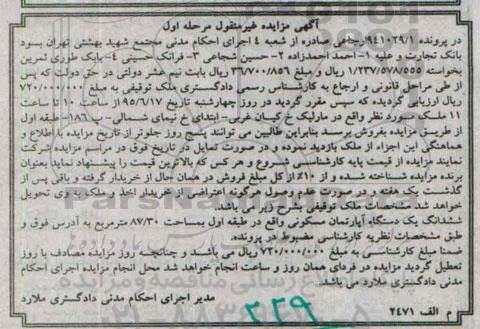 آگهی مزایده غیرمنقول مرحله اول
در پرونده ۹۴۱۰۲۹/۱/اجاهی صادره از شعبه ۴ اجرای احکام مدنی مجتمع شهید بهشتی تهران بسود
بانک تجارت و علیه ۱-احمد احمدزاده ۲- حسین شجاعی ۳- فرانک حسینی ۴-بابک طوری ثمرین
بخواسته ۱/۲۳۷/۵۷۸/۵۵۵ ریال و مبلغ ۳۶/۷۰۰/۸۵۶ ریال بابت نیم عشر دولتی در حق دولت که پس
از طی مراحل قانونی و ارجاع به کارشناس رسمی دادگستری ملک توقیفی به مبلغ ۷۲۰/۰۰۰/۰۰۰
ریال ارزیابی گردیده که سپس مقرر گردید در روز چهارشنبه تاریخ ۹۵/۶/۱۷ از ساعت ۱۰ تا ساعت
۱۱ ملک مورد نظر واقع در مارلیک خ کیان غربی- ابتدای خ نیمای شمالی- پ ۱۸۶ طبقه اول
از طریق مزایده بفروش برسد بنابراین طالبین می توانند پنج روز جلوتر از تاریخ مزایده با اطلاع و
هماهنگی این اجراء از ملک بازدید نموده و در صورت تمایل در تاریخ فوق در مراسم مزایده شرکت
نمایند مزایده از قیمت پایه کارشناسی شروع و هر کس که بالاترین قیمت را پیشنهاد نماید بعنوان
برنده مزایده شناخته شده و از ۱۰٪ از کل مبلغ فروش در همان حال از خریدار گرفته و باقی پس از
گذشت یک هفته و در صورت عدم وصول هرگونه اعتراضی از خریدار اخذ و ملک به وی تحویل
خواهد شد مشخصات ملک توقیفی بشرح زیر می باشد.
ششدانگ یک دستگاه آپارتمان مسکونی واقع در طبقه اول بمساحت ۸۷/۳۰ مترمربع به آدرس فوق و
طبق مشخصات نظریه کارشناسی مضبوط در پرونده.
ضمنا مبلغ کارشناسی به مبلغ ۷۲۰/۰۰۰/۰۰۰ ریال می باشد و چنانچه روز مزایده مصادف با روز
تعطیل گردید مزایده در فردای همان روز و ساعت انجام خواهد شد محل انجام مزایده اجرای احکام
مدنی دادگستری ملارد می باشد.
مدیر اجرای احکام مدنی دادگستری ملارد
م الف ۲۴۷۱
۲۲۹